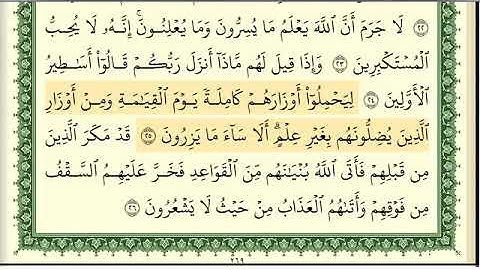 ٢٢ لَا جَرَمَ أَنَّ ٱللَّهَ يَعْلَمُ مَا يُسِرُّونَ وَمَا يُعْلِنُونَۚ إِنَّهُۥ لَا يُحِبُّ
ٱلْمُسْتَكْبِرِينَ ٢٣ وَإِذَا قِيلَ لَهُم مَّاذَآ أَنزَلَ رَبُّكُمْ قَالُوٓا۟ أَسَٰطِيرُ
ٱلْأَوَّلِينَ ٢٤ لِيَحْمِلُوٓا۟ أَوْزَارَهُمْ كَامِلَةً يَوْمَ ٱلْقِيَٰمَةِ وَمِنْ أَوْزَارِ
ٱلَّذِينَ يُضِلُّونَهُم بِغَيْرِ عِلْمٍۗ أَلَا سَآءَ مَا يَزِرُونَ ٢٥ قَدْ مَكَرَ ٱلَّذِينَ
مِن قَبْلِهِمْ فَأَتَى ٱللَّهُ بُنْيَٰنَهُم مِّنَ ٱلْقَوَاعِدِ فَخَرَّ عَلَيْهِمُ ٱلسَّقْفُ
مِن فَوْقِهِمْ وَأَتَىٰهُمُ ٱلْعَذَابُ مِنْ حَيْثُ لَا يَشْعُرُونَ ٢٦
٢٦٩